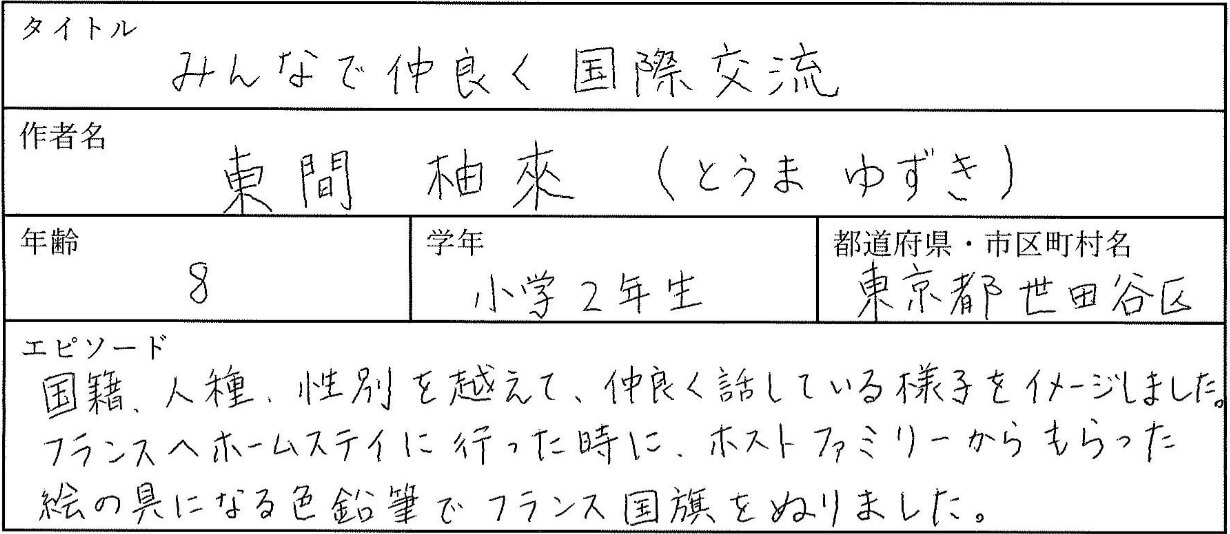 タイトル
みんなで仲良く国際交流
作者名
東間 柚來 (とうま ゆずき)
年齢
8
学年
小学2年生
都道府県・市区町村名
東京都世田谷区
エピソード
国籍、人種、性別を越えて、仲良く話している様子をイメージしました。
フランスへホームステイに行った時に、ホストファミリーからもらった
絵の具になる色鉛筆でフランス国旗をぬりました。